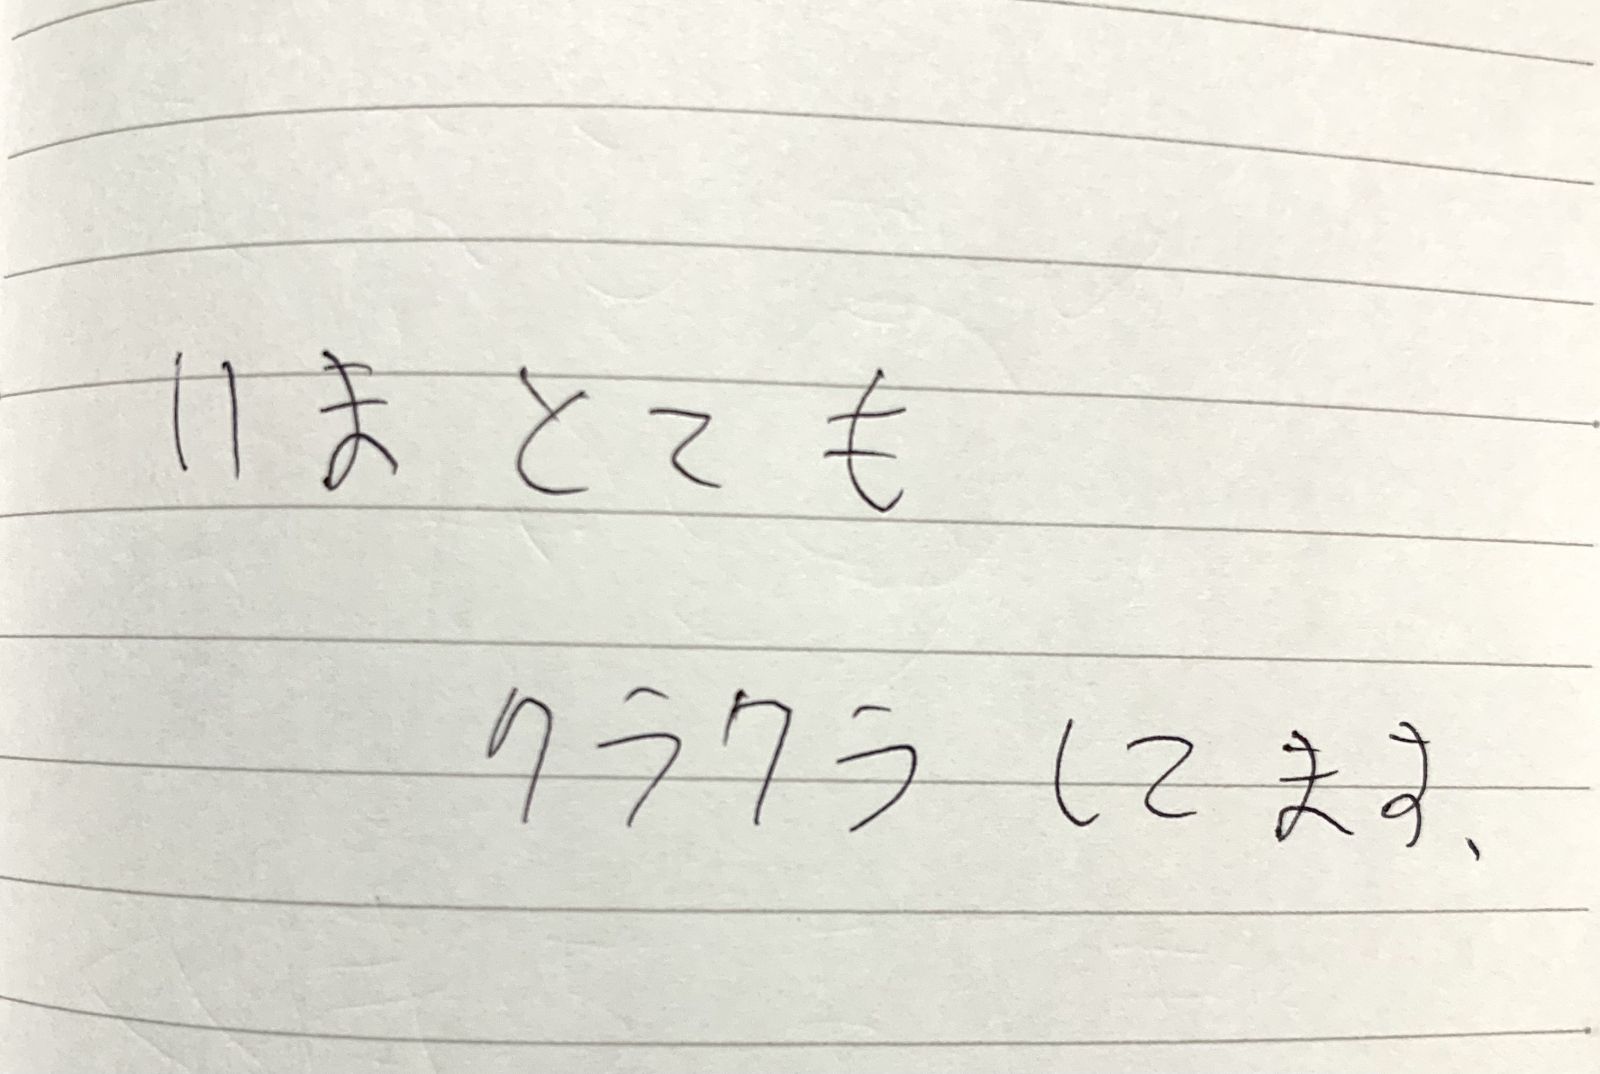 いまとても
クラクラしてます、